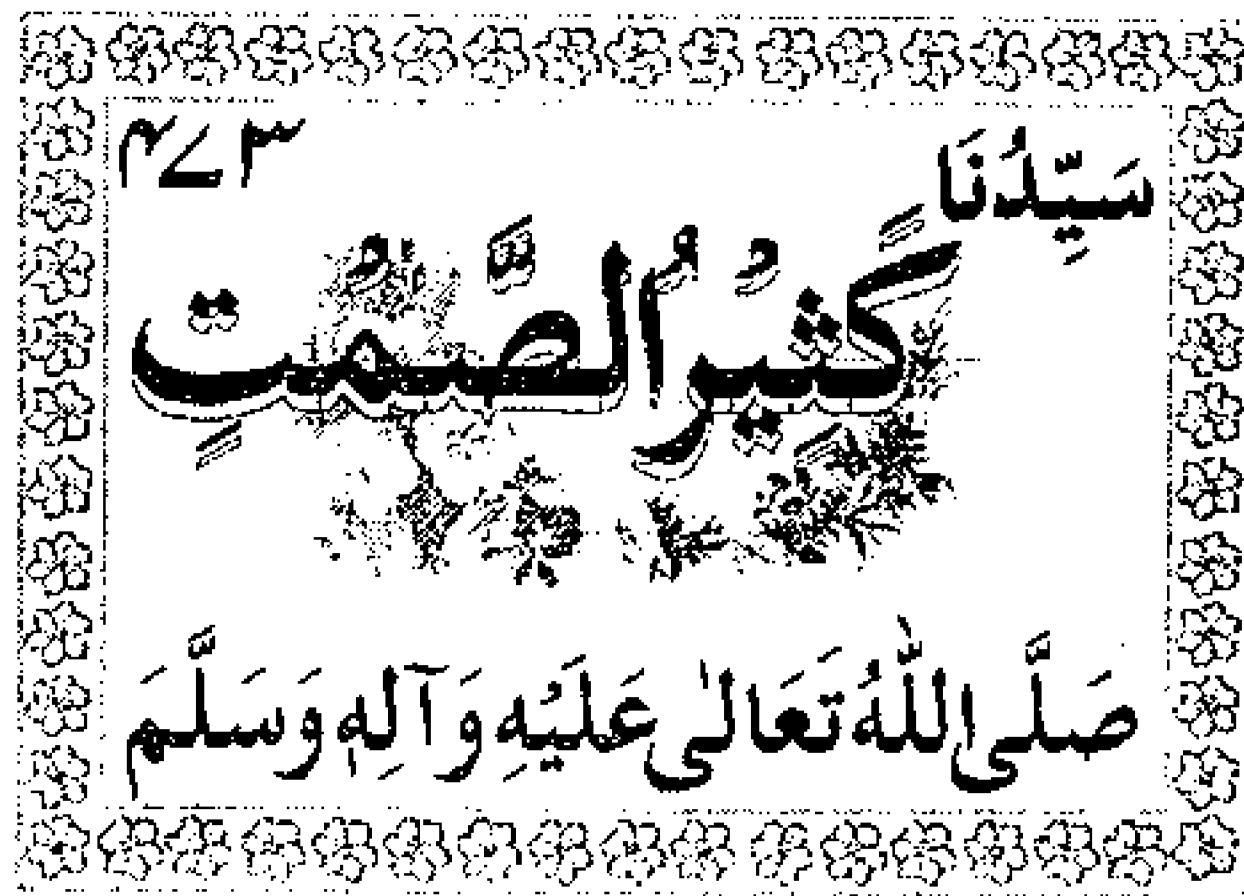 سَيِّدُنَا
۴۷۳
كَثِيْرُ الصَّمْتِ
صَلَّى اللّٰهُ تَعَالٰى عَلَيْهِ وَآلِهٖ وَسَلَّمَ